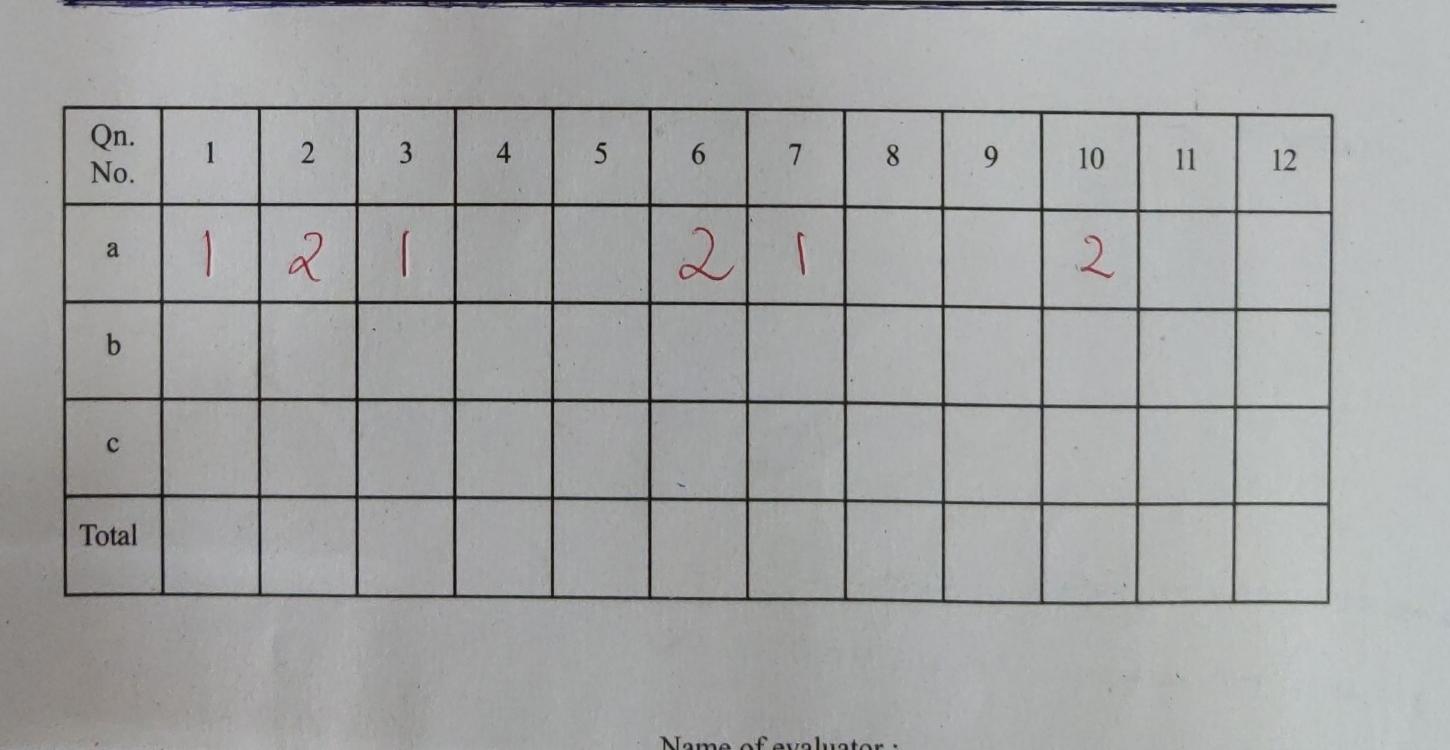 Qn. No. 1 2 3 4 5 6 7 8 9 10 11 12
a 1 2 1 2 1 2
b
c
Total
Name of evaluator :